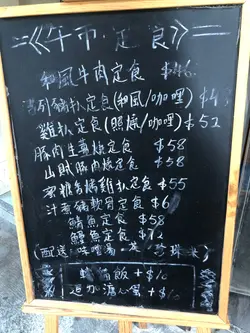 午市·定食
和風牛肉定食 $46
扒定食(和風/咖哩) $4
雞扒定食(照燒/咖哩) $52
豚肉生薑燒定食 $58
山賊豚肉燒定食 $58
蜜糖香橘雞扒定食 $55
汁蛋豬軟骨定食 $6
鯖魚定食 $58
鰻魚定食 $72
(配送: 味噌湯
飯 +$10
追加溏心蛋 +$10